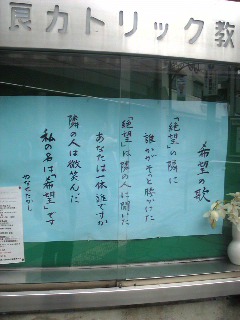 良カトリック教
希望の歌
「絶望」の隣に
誰かがそっと腰かけた
「絶望」は隣の人に聞いた
あなたは一体誰ですか
隣の人は微笑んだ
私の名は「希望」です
やなせたかし